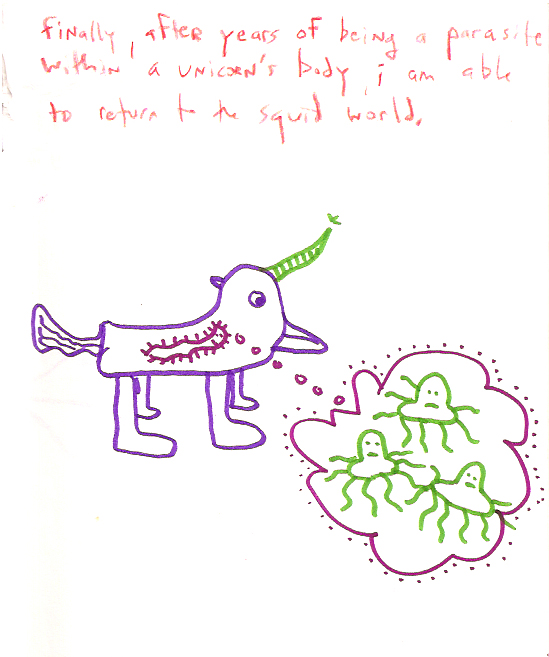 finally, after years of being a parasite
within a unicorn's body, i am able
to return to the squid world.